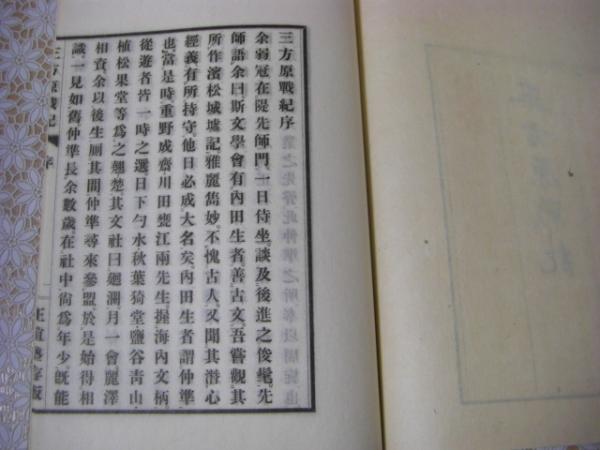 三方原戰紀序
余弱冠在隄先師門一日侍坐談及後進之俊髦先
師語余曰斯文學會有內田生者善古文吾嘗觀其
所作濱松城墟記雅麗雋妙不愧古人又聞其潛心
經義有所持守他日必成大名矣內田生者謂仲準
也當是時重野成齋川田甕江兩先生握海內文柄
從遊者皆一時之選日下勺水秋葉猗堂鹽谷青山
植松果堂等爲之翹楚其文社曰廻瀾月一會麗澤
相資余以後生厠其間仲準尋來參盟於是始得相
識一見如舊仲準長余數歲在社中尙爲年少旣能
三方原戰紀 序 一